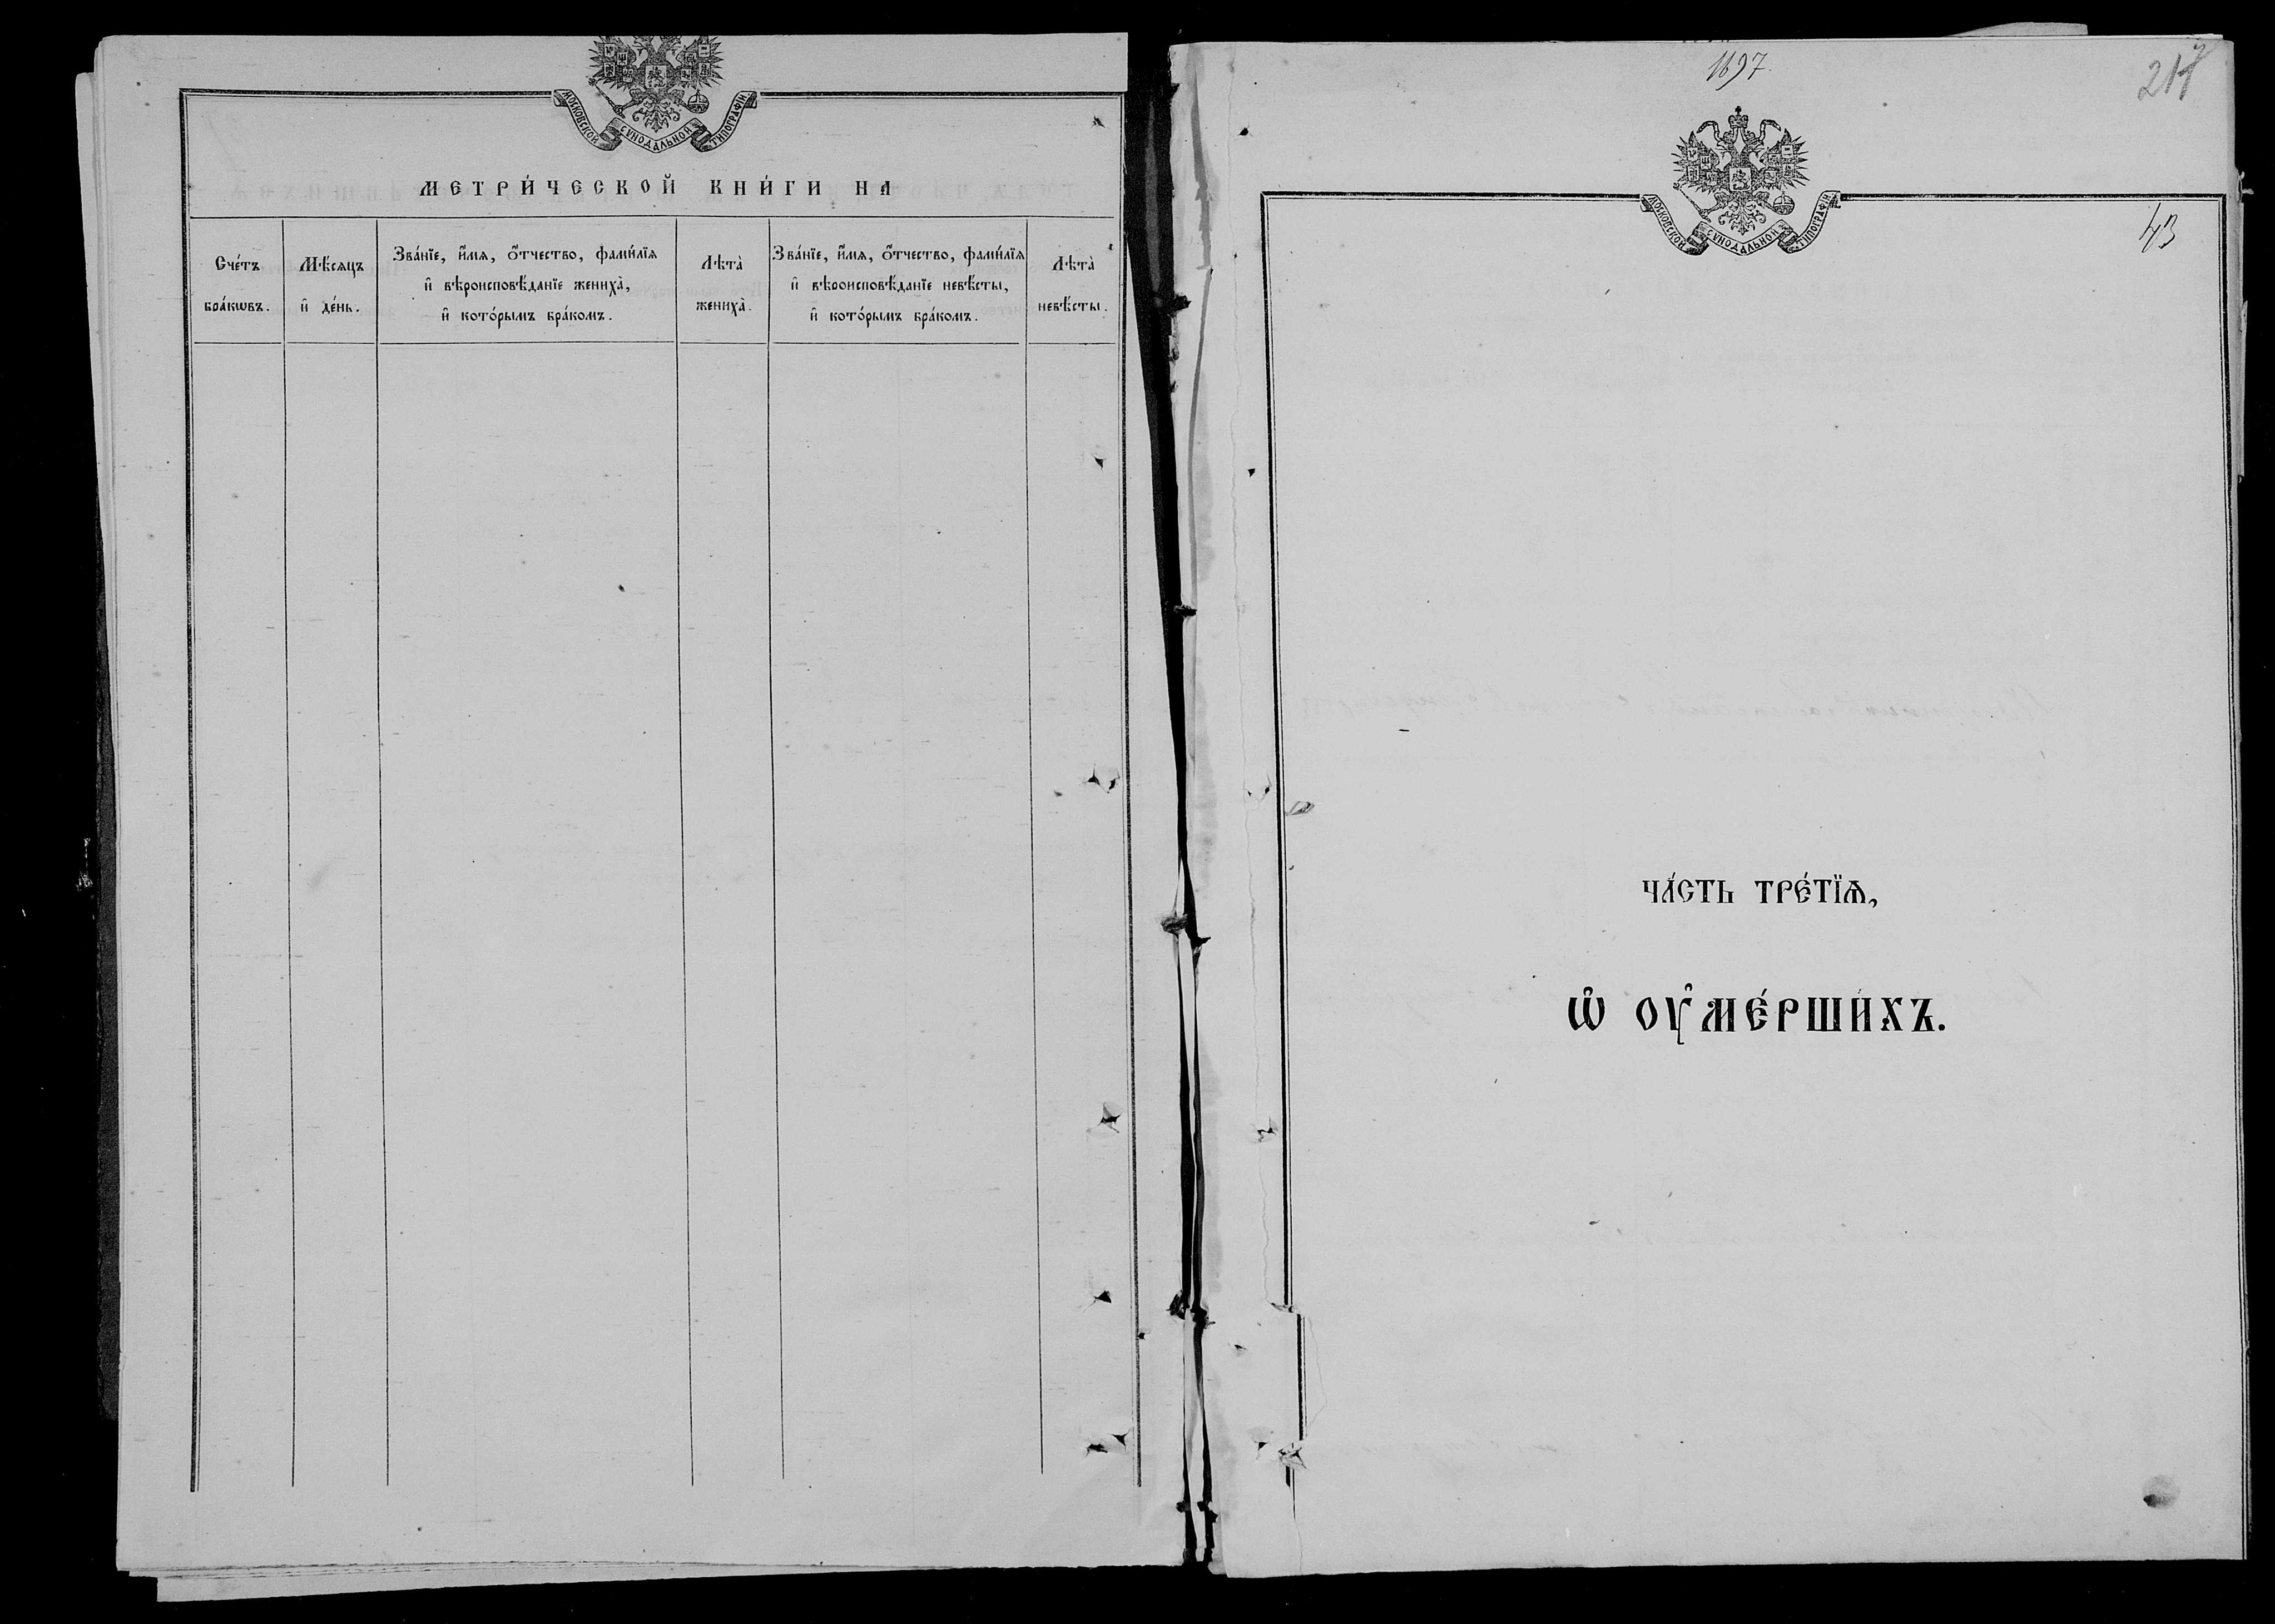 МОСКОВСКОЙ СѴНОДАЛЬНОЙ ТИПОГРАФІИ
МЕТРИ́ЧЕСКОЙ КНИ́ГИ НА
Сче́тъ бра́кѡвъ.
Мѣ́сяцъ и҆ де́нь.
Зва́нїе, и҆́мя, ѻ҆́тчество, фами́лїя
и҆ вѣроисповѣ́данїе жениха̀,
и҆ кото́рымъ бра́комъ.
Лѣта̀ жениха̀.
Зва́нїе, и҆́мя, ѻ҆́тчество, фами́лїя
и҆ вѣроисповѣ́данїе невѣ́сты,
и҆ кото́рымъ бра́комъ.
Лѣта̀ невѣ́сты.
1697
43
МОСКОВСКОЙ СѴНОДАЛЬНОЙ ТИПОГРАФІИ
ЧА́СТЬ ТРЕ́ТЇѦ,
Ѡ҆ ОУ҆МЕ́РШИХЪ.